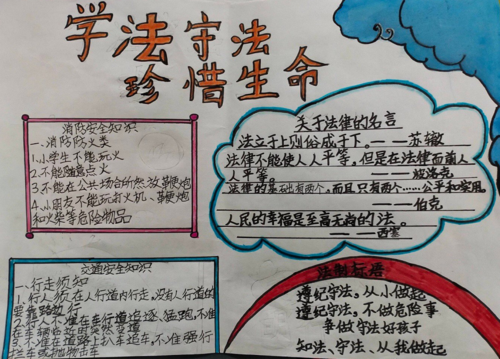 学法守法
珍惜生命
消防安全知识
一.消防防火类
1.小学生不能玩火
2.不能随意点火
3.不能在公共场合燃放鞭炮
4.小朋友不能玩打火机、鞭炮
和火柴等危险物品
关于法律的名言
法立于上则俗成于下。——苏辙
法律不能使人人平等，但是在法律面前人
人平等。——波洛克
法律的基础有两个，而且只有两个……公平和实用。
——伯克
人民的幸福是至高无尚的法。
——西塞
交通安全知识
一.行走须知
1.行人须在人行道内行走，没有人行道的
要靠路边
在车行道追逐，猛跑，不准
在车辆临近时突然
不准在道路上扒车追车，不准强行
拦车或抛物击车
法制标语
遵纪守法，从小做起
遵纪守法，不做危险事
争做守法好孩子
知法、守法、从我做起